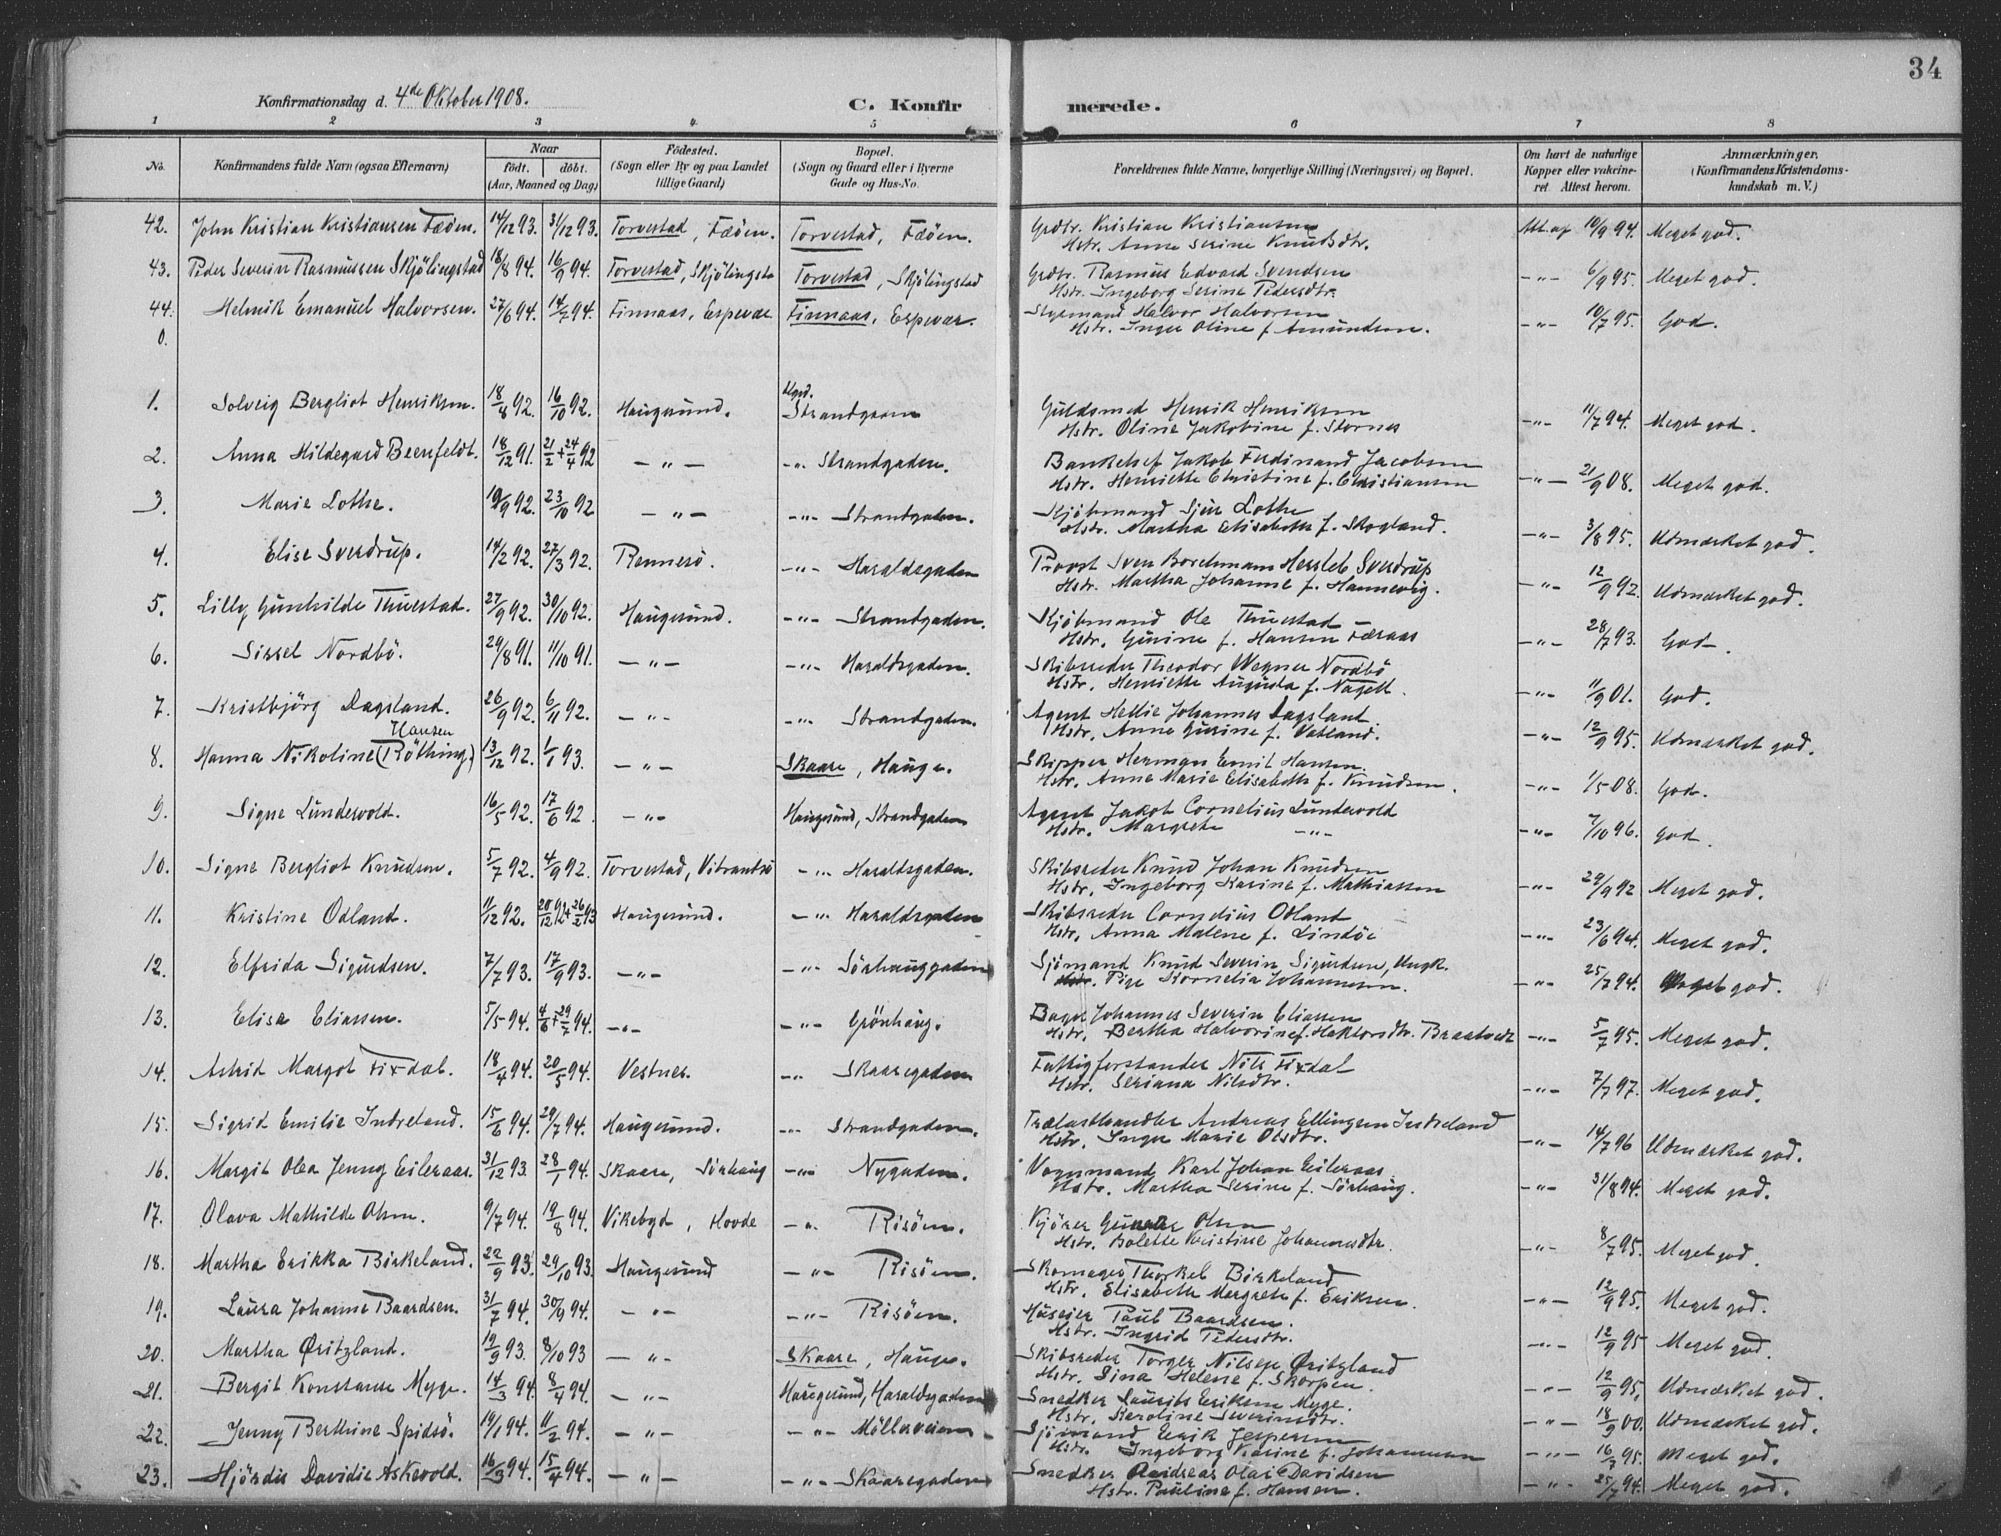 34
Konfirmationsdag d. 4de Oktober 1908. C. Konfirmerede.
1 2 3 4 5 6 7 8
No. Konfirmandens fulde Navn (ogsaa Efternavn) Naar födt. döbt. (Aar, Maaned og Dag) Födested. (Sogn eller By og paa Landet tillige Gaard) Bopæl. (Sogn og Gaard eller i Byerne Gade og Hus-No. Forældrenes fulde Navne, borgerlige Stilling (Næringsvei) og Bopæl. Om havt de naturlige Kopper eller vakcineret. Attest herom. Anmærkninger. (Konfirmandens Kristendomskundskab m. V.)
42. John Kristian Kristiansen Fæöen. 14/12 93. 31/12 93. Torvestad, Fæöen. Torvestad, Fæöen. Grdbr. Kristian Kristiansen Att. af 10/9 94. Meget god.
Hstr. Anne Serine Knutsdtr.
43. Peder Severin Rasmussen Skjölingstad 18/8 94. 16/9 94. Torvestad, Skjölingsta Torvestad, Skjölingstad Grdbr. Rasmus Edvard Svendsen -"- 6/9 95. Meget god.
Hstr. Ingeborg Serine Pedersdtr.
44. Helmik Emanuel Halvorsen. 27/6 94. 14/7 94. Finnaas, Espevær Finnaas, Espevær. Styrmand Halvor Halvorsen -"- 10/7 95. God.
Hstr. Inger Oline f. Amundsen.
0.
1. Solveig Bergliot Henriksen. 18/8 92. 16/10 92. Haugesund. Hgsd. Strandgaten Guldsmed Henrik Henriksen -"- 11/7 94. Meget god.
Hstr. Oline Jakobine f. Stornes
2. Anna Hildegard Beenfeldt. 18/12 91. 21/2 + 24/4 92 -"- -"- Strandgaden. Bankchef Jakob Ferdinand Jacobsen -"- 21/9 08. Meget god.
Hstr. Henriette Christine f. Christiansen
3. Marie Lothe. 19/9 92. 23/10 92 -"- -"- Strandgaden. Kjöbmand Sjur Lothe -"- 3/8 95. Udmærket god.
Hstr. Martha Elisabeth f. Skogland.
4. Elise Sverdrup. 14/2 92. 27/3 92. Rennesö. -"- Haraldsgaden Provst Sven Borchmann Hersleb Sverdrup -"- 12/9 92. Udmærket god.
Hstr. Martha Johanne f. Hannevig.
5. Lilly Gunhilde Thuestad. 27/9 92. 30/10 92. Haugesund. -"- Strandgaden. Kjöbmand Ole Thuestad -"- 28/7 93. God.
Hstr. Gurine f. Hansen Færaas
6. Sissel Nordbö. 29/8 91. 11/10 91. -"- -"- Haraldsgaden. Skibsreder Theodor Wegner Nordbö -"- 11/9 01. God.
Hstr. Henriette Augusta f. Nagell.
7. Kristbjörg Dagsland. 26/9 92. 6/11 92. -"- -"- Strandgaden. Agent Hellie Johannes Dagsland. -"- 12/9 95. Udmærket god.
Hstr. Anne Gurine f. Vatland.
8. Hanna Nikoline (Röthing) Hansen 13/12 92. 1/1 93. -"- Skaare, Hauge. Skipper Herman Emil Hansen. -"- 1/5 08. God.
Hstr. Anne Marie Elisabeth f. Knudsen.
9. Signe Lundervold. 16/5 92. 17/6 92. -"- Haugesund, Strandgaden Agent Jakob Cornelius Lundervold -"- 7/10 96. God.
Hstr. Margrete -"-
10. Signe Bergliot Knudsen. 5/7 92. 4/9 92. Torvestad, Vibrandsö -"- Haraldsgaden. Skibsreder Knud Johan Knudsen -"- 29/9 92 Meget god.
Hstr. Ingeborg Karine f. Mathiassen
11. Kristine Odland. 11/12 92. 20/12 92 + 26/2 93 Haugesund. -"- Haraldsgaden Skibsreder Cornelius Odland -"- 23/6 94. Meget god.
Hstr. Anna Malene f. Lindöe
12. Elfrida Sigurdsen. 7/7 93. 17/9 93. -"- -"- Sörhauggaden Sjömand Knud Severin Sigurdsen, Ungk. -"- 25/7 94. Meget god.
Pige Kornelia Johannesen.
13. Elise Eliassen. 5/5 94. 4/6 + 29/7 94. -"- -"- Grönhaug. Bager Johannes Severin Eliassen -"- 5/7 95. Meget god.
Hstr. Bertha Halvorine f. Hektorsdtr. Braatvedt
14. Astrid Margot Fixdal. 18/4 94. 20/5 94. Vestnes. -"- Skaaregaden Fattigforstander Nils Fixdal -"- 7/7 97. Meget god.
Hstr. Seriana Nilsdtr.
15. Sigrid Emilie Indreland. 15/6 94. 29/7 94. Haugesund. -"- Strandgaden. Trælasthandler Andreas Ellingsen Indreland -"- 14/7 96 Udmærket god.
Hstr. Inger Marie Olsdtr.
16. Margit Olea Jenny Eileraas. 31/12 93. 28/1 94. Skaare, Sörhaug -"- Nygaden. Vognmand Karl Johan Eileraas -"- 31/8 94. Meget god.
Hstr. Martha Serine f. Sörhaug.
17. Olava Mathilde Olsen. 9/7 94. 19/8 94. Vikebygd, Hovde -"- Risöen. Kjörer Gunnar Olsen -"- 8/7 95. Meget god.
Hstr. Bolette Kristine Johannesdtr.
18. Martha Erikka Birkeland. 22/9 93. 29/10 93. Haugesund -"- Risöen. Skomager Thorkel Birkeland -"- 12/9 95. Meget god.
Hstr. Elisabeth Margrete f. Eriksen.
19. Laura Johanne Baardsen. 31/7 94. 30/9 94. -"- -"- Risöen. Huseier Paul Baardsen. -"- 12/9 95 Meget god.
Hstr. Ingrid Pedersdtr.
20. Martha Öritzland. 19/9 93. 8/10 93 -"- Skaare, Hauge. Skibsreder Torger Nilsen Öritzland -"- 12/9 95. Udmærket god.
Hstr. Sina Helene f. Skorpen.
21. Bergit Konstanse Myge. 14/3 94. 8/4 94. -"- Haugesund, Haraldsgaden Snedker Laurits Eriksen Myge. -"- 18/9 00. Udmærket god.
Hstr. Karoline Severinsdtr.
22. Jenny Berthine Spidsö. 19/1 94. 11/2 94. -"- -"- Möllerveien Sjömand Erik Jespersen -"- 16/7 95. Meget god.
Hstr. Ingeborg Karine f. Johannesen
23. Hjördis Davidie Askevold. 16/3 94. 15/4 94. -"- -"- Skaaregaden Snedker Andreas Olai Davidsen -"- 25/7 94. Meget god.
Hstr. Pauline f. Hansen.